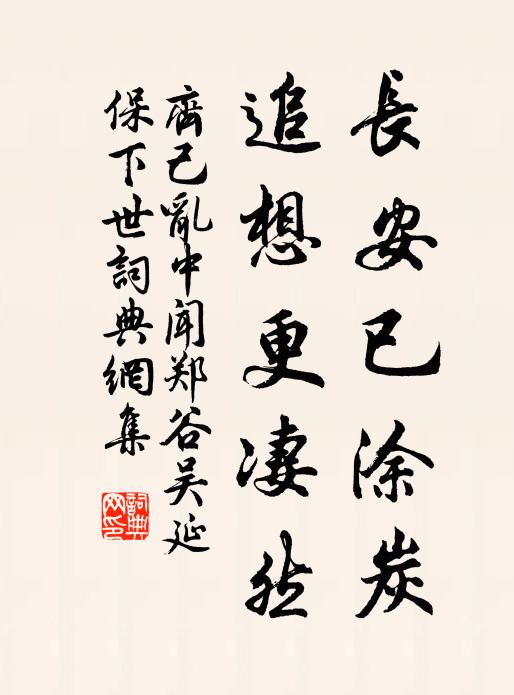 長安已涂炭
追想更凄然
齊己亂中闻郑谷吴延
保下世詞典網集
詞典网印